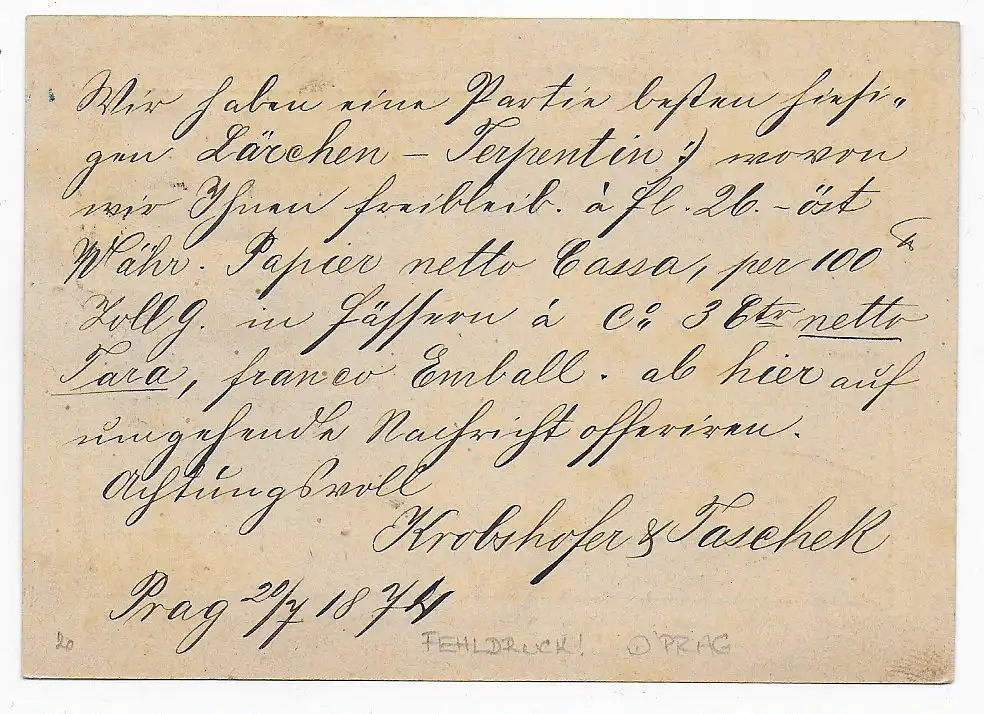 Wir haben eine Partie besten hiesi-
gen Lärchen - Terpentin :) wovon
wir Ihnen freibleib. à fl. 26. - öst
Währ. Papier netto Cassa, per 100 ℔
Zollg. in Fässern à Co 3 Ctr netto
Tara, franco Emball. ab hier auf
umgehende Nachricht offeriren.
Achtungsvoll
Krobshofer & Taschek
Prag 20/7 1874
20 FEHLDRUCK! PRAG